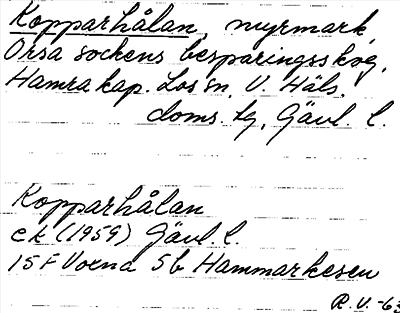 Kopparhålan, myrmark,
Orsa sockens besparingsskog,
Hamra kap. Los sn, V. Häls.
doms. tg, Gävl. l.
Kopparhålan
ek (1959) Gävl. l.
15 F Voxna 5b Hammarkesen
R.V. -63